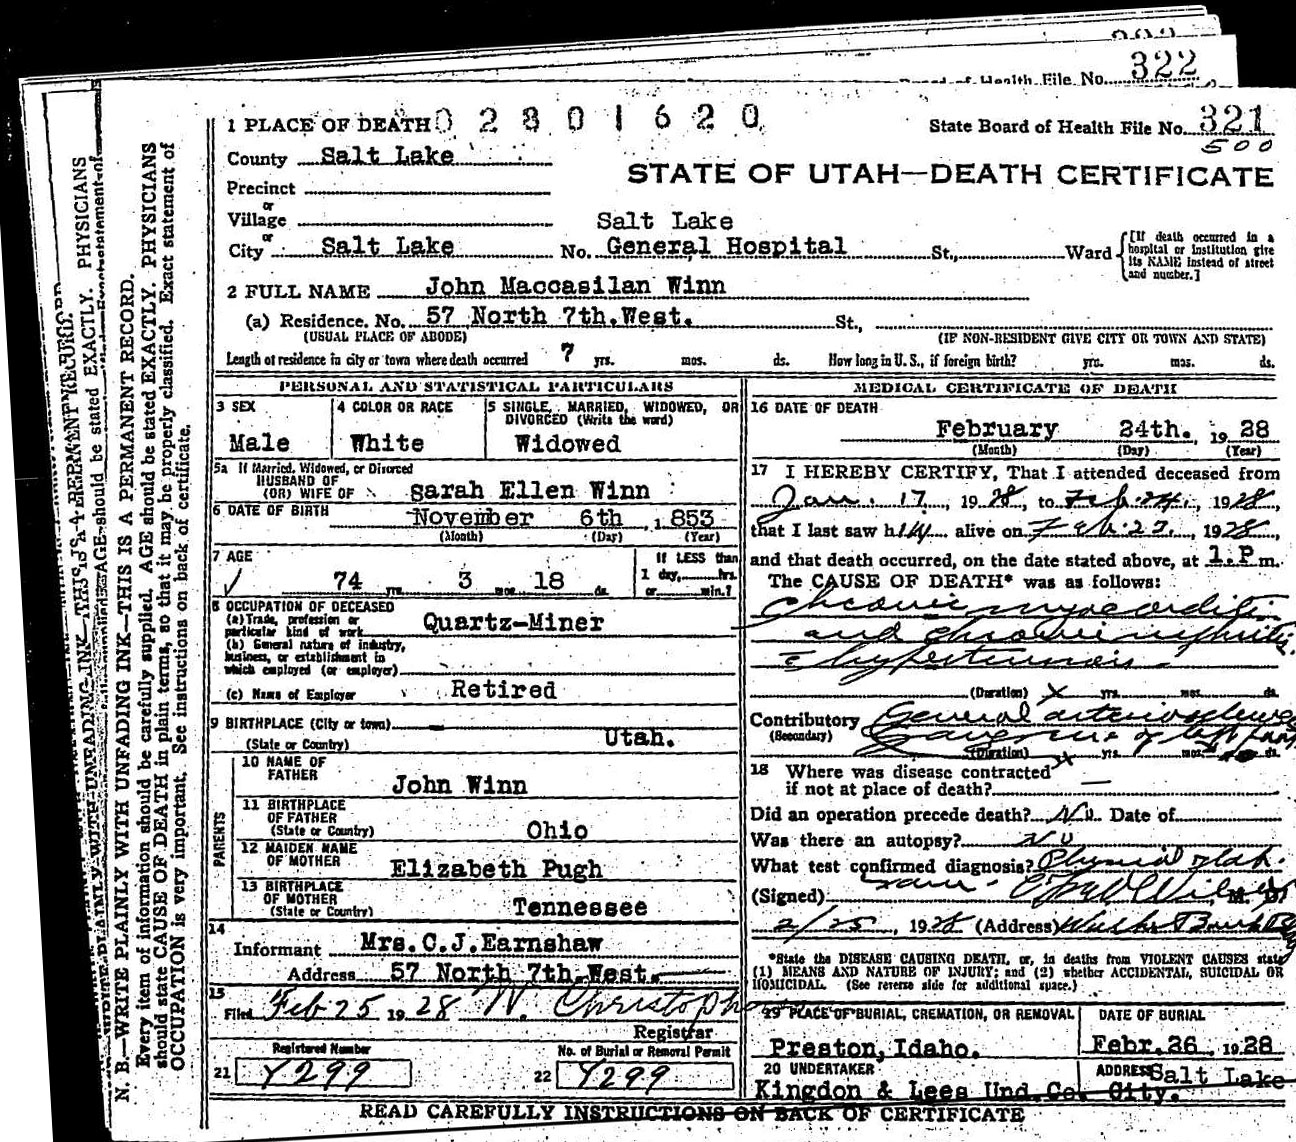 322
Board of Health File No.
1 PLACE OF DEATH 02801620
State Board of Health File No. 321
500
County Salt Lake
STATE OF UTAH—DEATH CERTIFICATE
Precinct
or
Village
Salt Lake
or
City Salt Lake No. General Hospital St., Ward
[If death occurred in a
hospital or institution give
its NAME instead of street
and number.]
2 FULL NAME John Maccasilan Winn
(a) Residence. No. 57 North 7th.West. St.,
(USUAL PLACE OF ABODE) (IF NON-RESIDENT GIVE CITY OR TOWN AND STATE)
Length of residence in city or town where death occurred 7 yrs. mos. ds. How long in U. S., if foreign birth? yrs. mos. ds.
PERSONAL AND STATISTICAL PARTICULARS
3 SEX
Male
4 COLOR OR RACE
White
5 SINGLE, MARRIED, WIDOWED, OR
DIVORCED (Write the word)
Widowed
5a If Married, Widowed, or Divorced
HUSBAND OF
(OR) WIFE OF Sarah Ellen Winn
6 DATE OF BIRTH
November 6th , 1853
(Month) (Day) (Year)
7 AGE
74 yrs. 3 mos. 18 ds.
If LESS than
1 day, hrs.
or min.?
8 OCCUPATION OF DECEASED
(a) Trade, profession or
particular kind of work Quartz-Miner
(b) General nature of industry,
business, or establishment in
which employed (or employer)
(c) Name of Employer Retired
9 BIRTHPLACE (City or town)
(State or Country) Utah.
PARENTS
10 NAME OF
FATHER
John Winn
11 BIRTHPLACE
OF FATHER
(State or Country) Ohio
12 MAIDEN NAME
OF MOTHER
Elizabeth Pugh
13 BIRTHPLACE
OF MOTHER
(State or Country) Tennessee
14
Informant Mrs.C.J.Earnshaw
Address 57 North 7th.West.
15
Filed Feb 25 1928 W. Christoph
Registrar
Registered Number
21 Y299
No. of Burial or Removal Permit
22 Y299
MEDICAL CERTIFICATE OF DEATH
16 DATE OF DEATH
February 24th. 1928
(Month) (Day) (Year)
17 I HEREBY CERTIFY, That I attended deceased from
Jan. 17, 1928, to Feb. 24., 1928,
that I last saw him alive on Feb. 23., 1928,
and that death occurred, on the date stated above, at 1.P m.
The CAUSE OF DEATH* was as follows:
chronic myocarditis
and chronic nephritis
c hypertension
(Duration) X yrs. mos. ds.
Contributory General arteriosclerosis
(Secondary) Gangrene of left
(Duration) yrs. mos. ds.
18 Where was disease contracted
if not at place of death? —
Did an operation precede death? No. Date of
Was there an autopsy? No
What test confirmed diagnosis? Physical & lab.
exam.
(Signed) M. D.
2/25, 1928 (Address)
*State the DISEASE CAUSING DEATH, or, in deaths from VIOLENT CAUSES state
(1) MEANS AND NATURE OF INJURY; and (2) whether ACCIDENTAL, SUICIDAL OR
HOMICIDAL. (See reverse side for additional space.)
19 PLACE OF BURIAL, CREMATION, OR REMOVAL
Preston, Idaho.
DATE OF BURIAL
Febr.26 , 1928
20 UNDERTAKER
Kingdon & Lees Und.Co.
ADDRESS Salt Lake
City.
READ CAREFULLY INSTRUCTIONS ON BACK OF CERTIFICATE
N. B.—WRITE PLAINLY WITH UNFADING INK—THIS IS A PERMANENT RECORD.
Every item of information should be carefully supplied. AGE should be stated EXACTLY. PHYSICIANS
should state CAUSE OF DEATH in plain terms, so that it may be properly classified. Exact statement of
OCCUPATION is very important. See instructions on back of certificate.